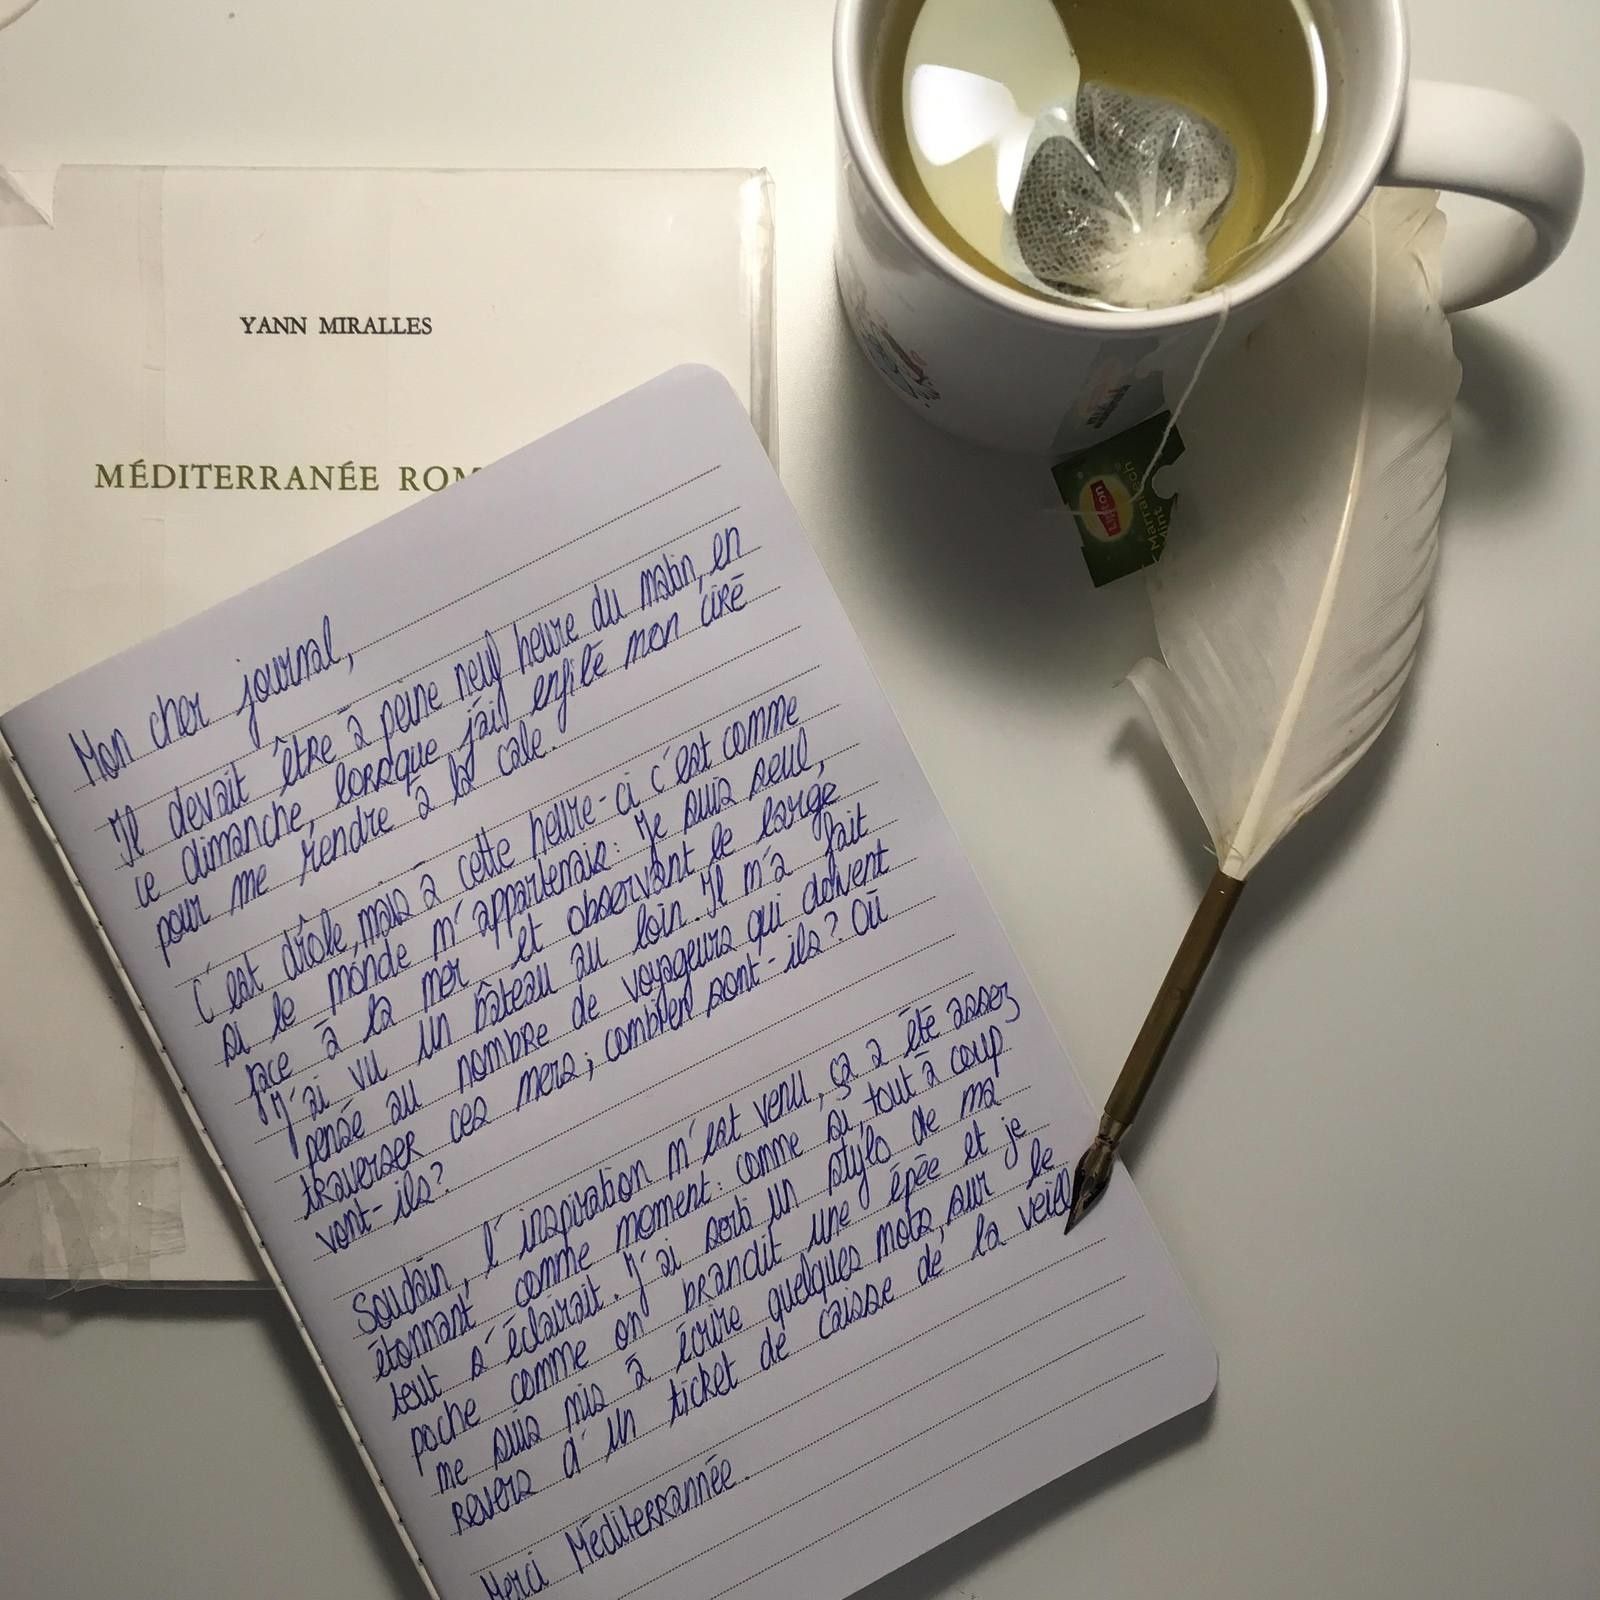 YANN MIRALLES
MÉDITERRANÉE ROM
Lipton
Marrakech
Mint
Mon cher journal,
Il devait être à peine neuf heure du matin, en
ce dimanche, lorsque j'ai enfilé mon ciré
pour me rendre à la cale.
C'est drôle, mais à cette heure-ci c'est comme
si le monde m'appartenais : Je suis seul,
face à la mer et observant le large
J'ai vu un bâteau au loin. Il m'a fait
pensé au nombre de voyageurs qui doivent
traverser ces mers ; combien sont-ils ? Où
vont-ils ?
Soudain, l'inspiration m'est venu, ça a été assez
étonnant comme moment : comme si, tout à coup
tout s'éclairait. J'ai sorti un stylo de ma
poche comme on brandit une épée et je
me suis mis à écrire quelques mots, sur le
revers d'un ticket de caisse de la veill
Merci Méditerrannée.